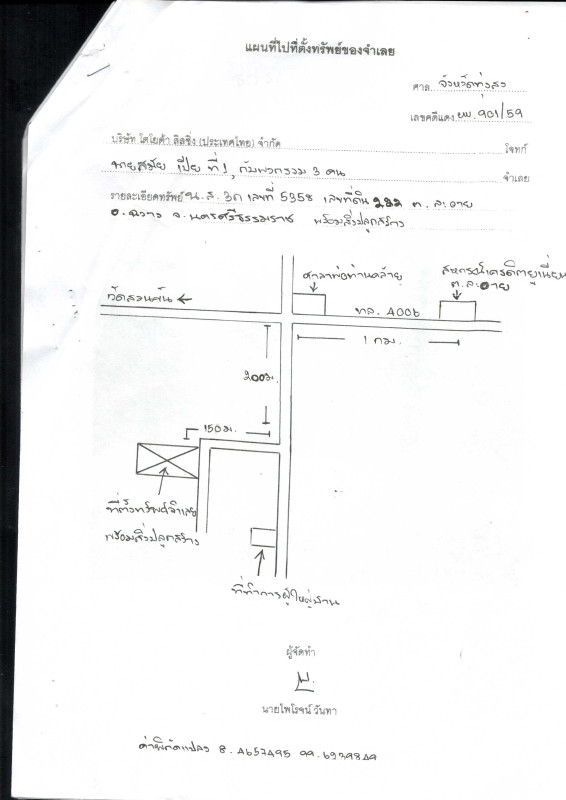 แผนที่ไปที่ตั้งทรัพย์ของจำเลย
ศาล จังหวัดทุ่งสง
เลขคดีแดง ยพ. 901/59
บริษัท โตโยต้า ลิสซิ่ง (ประเทศไทย) จำกัด โจทก์
นายสมัย เปีย ที่ 1, กับพวกรวม 3 คน จำเลย
รายละเอียดทรัพย์ น.ส. 3ก เลขที่ 5358 เลขที่ดิน 232 ต. ละอาย
อ. ฉวาง จ. นครศรีธรรมราช พร้อมสิ่งปลูกสร้าง
ศาลาพ่อท่านคล้าย
สหกรณ์เครดิตยูเนี่ยน
ต. ละอาย
วัดสวนขัน
ทล. 4006
1 กม.
200 ม.
150 ม.
ที่ตั้งทรัพย์จำเลย
พร้อมสิ่งปลูกสร้าง
ที่ทำการผู้ใหญ่บ้าน
ผู้จัดทำ
นายไพโรจน์ วันทา
ค่าพิกัดแปลง 8.4657495 99.6379849